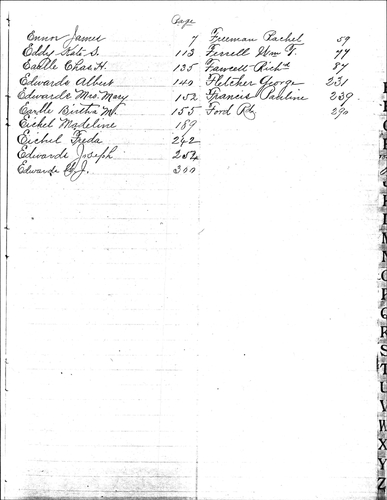 Page
Ennor James 7
Eddy Kate S. 113
Earlle Chas H. 135
Edwards Albert 140
Edwards Mrs Mary 152
Earlle Birtha M. 155
Eichel Madeline 189
Eichel Freda 242
Edwards Joseph 252
Edwards J. 300
Freeman Rachel 59
Ferrell Wm T. 77
Fawcett Richd 87
Fletcher George 231
Francis Pauline 239
Ford 290
M
N
O
P
Q
R
S
T
U
V
W
X
Y
Z